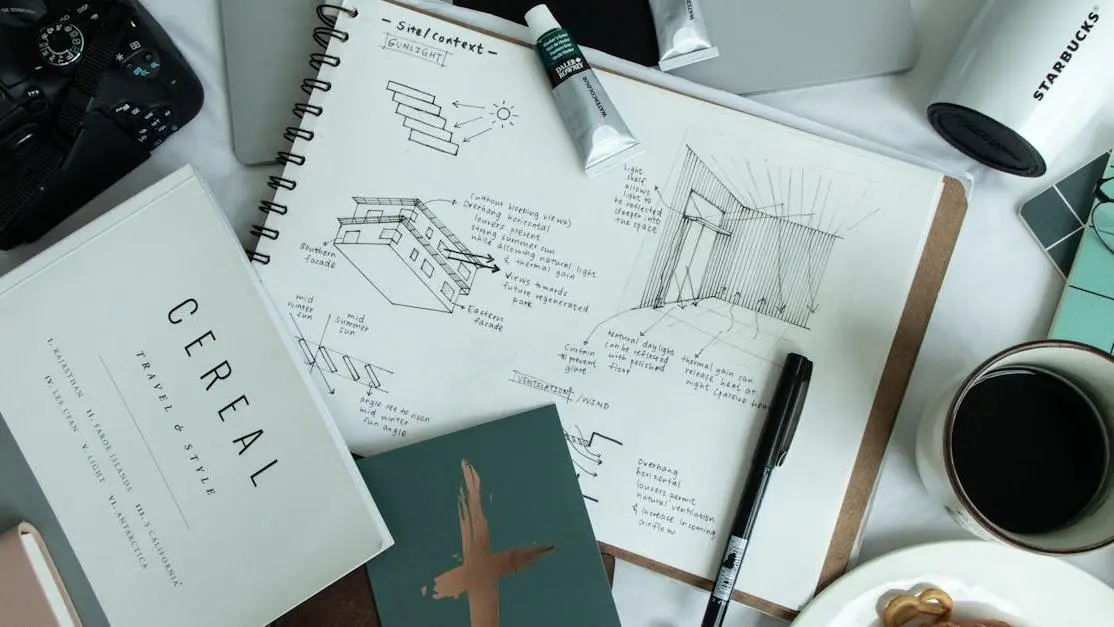 - Site/context -
SUNLIGHT
(without blocking views)
Overhang horizontal
louvers prevent
strong summer sun
while allowing natural light
& thermal gain
Southern
facade
Views towards
future regenerated
park
Eastern
facade
mid
winter
sun
mid
summer
sun
angle
mid winter
sun angle
Light
shelf
allows
light to
be reflected
deeper into
the space
Curtain
prevent
glare
Natural daylight
can be reflected
with polished
floor
thermal gain can
release heat at
night (passive
VENTILATION/WIND
Overhang
horizontal
louvers permit
natural ventilation
& increase incoming
airflow
CEREAL
TRAVEL & STYLE
I. RAJASTHAN II. FAROE ISLANDS III. S CALIFORNIA
IV. LEE UFAN V. LIGHT VI. ANTARCTICA
DALER
ROWNEY
WATERCOLOUR
STARBUCKS